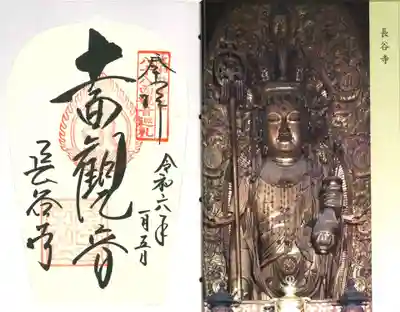 奉拝
十一面觀音
長谷寺
令和六年
一月五日
長谷寺